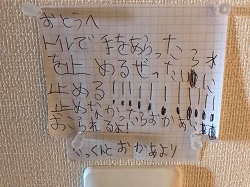 おとうへ
トイレで手をあらったら水
を止めるぜったいに
止める!!!!!!!!!!
止めなかったらおかあに
おこられるよ!
っくんとおかあより